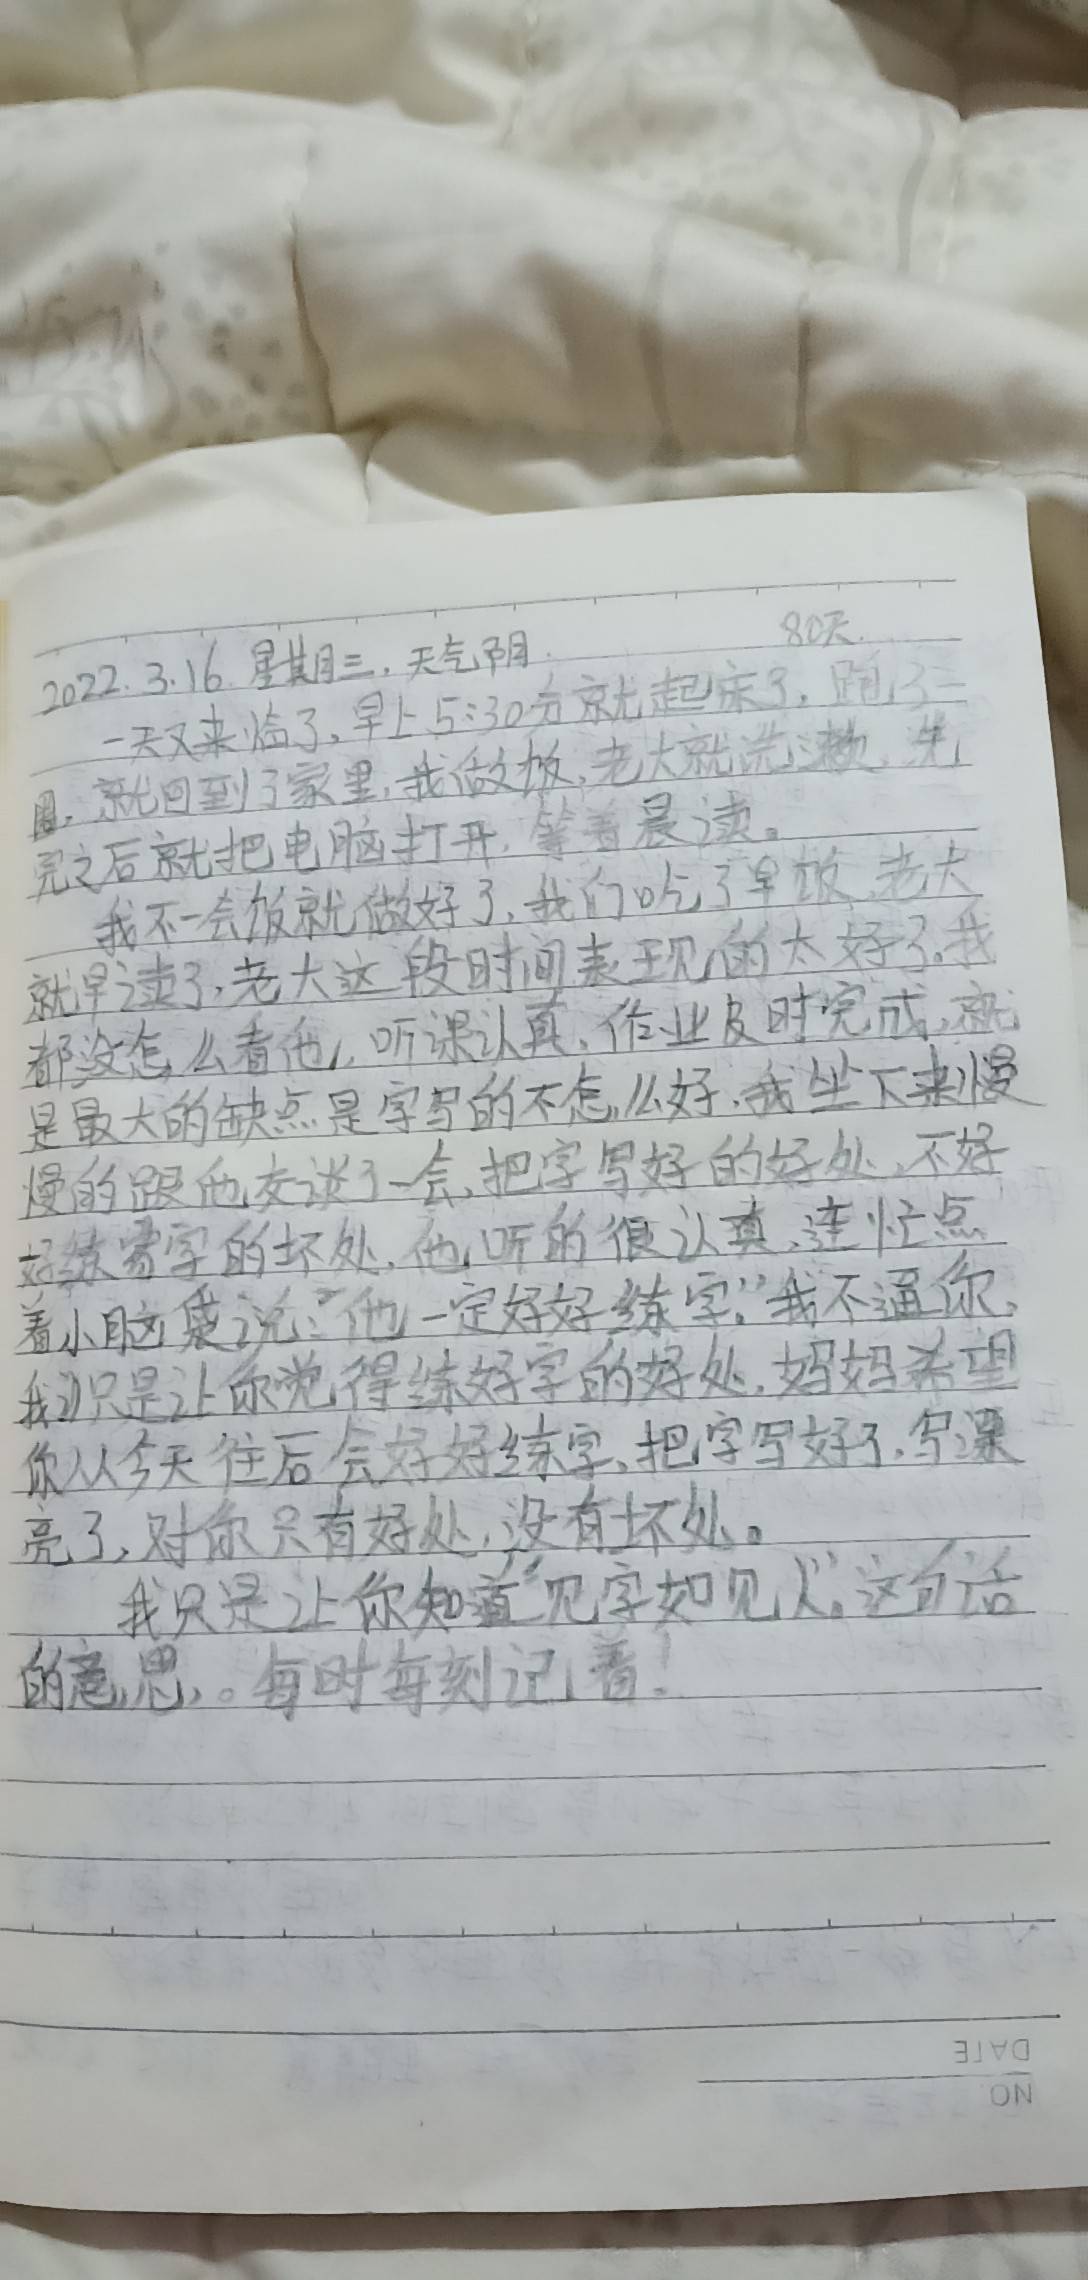 2022.3.16.星期三.天气阴. 80天.
一天又来临了,早上5:30分就起床了,跑了一
圈,就回到了家里,我做饭,老大就洗漱,洗
完之后就把电脑打开,等着晨读。
我不一会饭就做好了,我们吃了早饭,老大
就早读了,老大这段时间表现的太好了。我
都没怎么看他,听课认真,作业及时完成,就
是最大的缺点是字写的不怎么好,我坐下来慢
慢的跟他交谈了一会,把字写好的好处,不好
好练字的坏处,他听的很认真,连忙点
着小脑袋说:“他一定好好练字,”我不逼你,
我只是让你觉得练好字的好处,妈妈希望
你从今天往后会好好练字,把字写好了,写漂
亮了,对你只有好处,没有坏处。
我只是让你知道“见字如见人”。这句话
的意思,。每时每刻记着!
DATE
NO